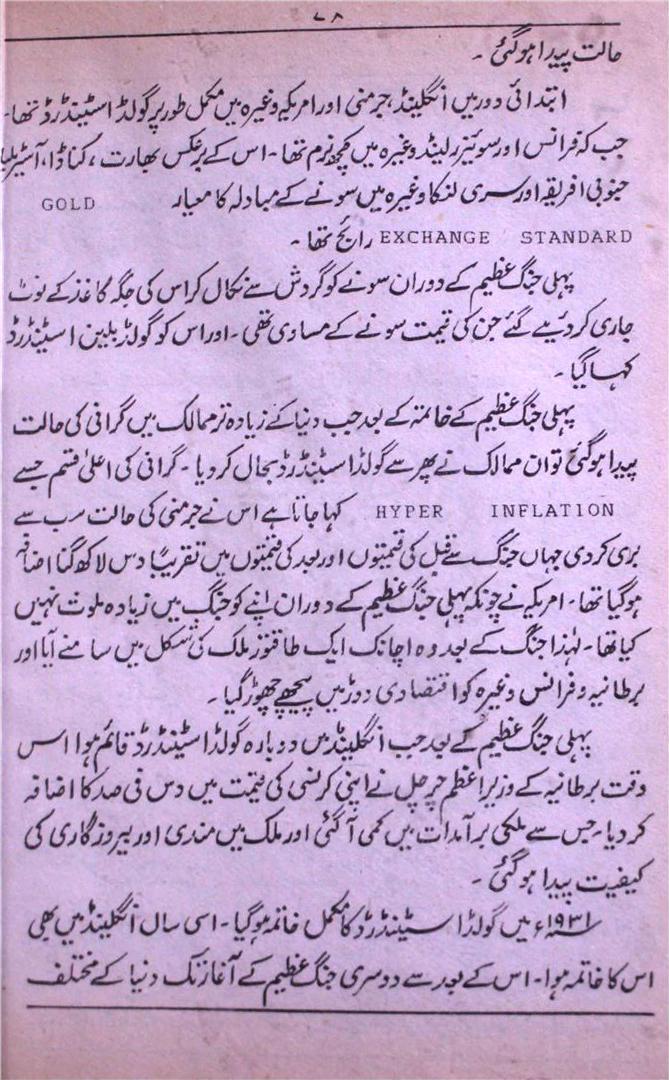 ۷۸
حالت پیدا ہوگئی ۔
ابتدائی دور میں انگلینڈ، جرمنی اور امریکہ وغیرہ میں مکمل طور پر گولڈ اسٹینڈرڈ تھا۔
جب کہ فرانس اور سوئیزرلینڈ وغیرہ میں کچھ نرم تھا ۔ اس کے برعکس بھارت ، کناڈا، آسٹریلیا
جنوبی افریقہ اور سری لنکا وغیرہ میں سونے کے مبادلہ کا معیار GOLD
EXCHANGE STANDARD رائج تھا ۔
پہلی جنگ عظیم کے دوران سونے کو گردش سے نکال کر اس کی جگہ کاغذ کے نوٹ
جاری کر دئیے گئے جن کی قیمت سونے کے مساوی تھی ۔ اور اس کو گولڈ بلین اسٹینڈرڈ
کہا گیا ۔
پہلی جنگ عظیم کے خاتمہ کے بعد جب دنیا کے زیادہ تر ممالک میں گرانی کی حالت
پیدا ہوگئی تو ان ممالک نے پھر سے گولڈ اسٹینڈرڈ بحال کر دیا ۔ گرانی کی اعلیٰ قسم جسے
HYPER INFLATION کہا جاتا ہے اس نے جرمنی کی حالت سب سے
بری کر دی جہاں جنگ سے قبل کی قیمتوں اور بعد کی قیمتوں میں تقریباً دس لاکھ گنا اضافہ
ہوگیا تھا ۔ امریکہ نے چونکہ پہلی جنگ عظیم کے دوران اپنے کو جنگ میں زیادہ ملوث نہیں
کیا تھا ۔ لہٰذا جنگ کے بعد وہ اچانک ایک طاقتور ملک کی شکل میں سامنے آیا اور
برطانیہ و فرانس وغیرہ کو اقتصادی دوڑ میں پیچھے چھوڑ گیا ۔
پہلی جنگ عظیم کے بعد جب انگلینڈ میں دوبارہ گولڈ اسٹینڈرڈ قائم ہوا اس
وقت برطانیہ کے وزیر اعظم چرچل نے اپنی کرنسی کی قیمت میں دس فی صد کا اضافہ
کر دیا ۔ جس سے ملکی برآمدات میں کمی آگئی اور ملک میں مندی اور بیروزگاری کی
کیفیت پیدا ہوگئی ۔
۱۹۳۱ء میں گولڈ اسٹینڈرڈ کا مکمل خاتمہ ہوگیا ۔ اسی سال انگلینڈ میں بھی
اس کا خاتمہ ہوا ۔ اس کے بعد سے دوسری جنگ عظیم کے آغاز تک دنیا کے مختلف